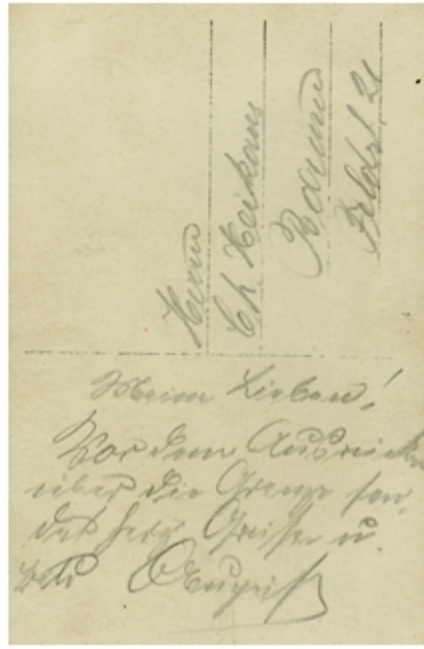 Herrn
Ch. Heikaus
Barmen
Feldst. 21
Meine Lieben!
Vor dem Ausrücken
über die Grenze sen-
det herz. Grüße u.
August